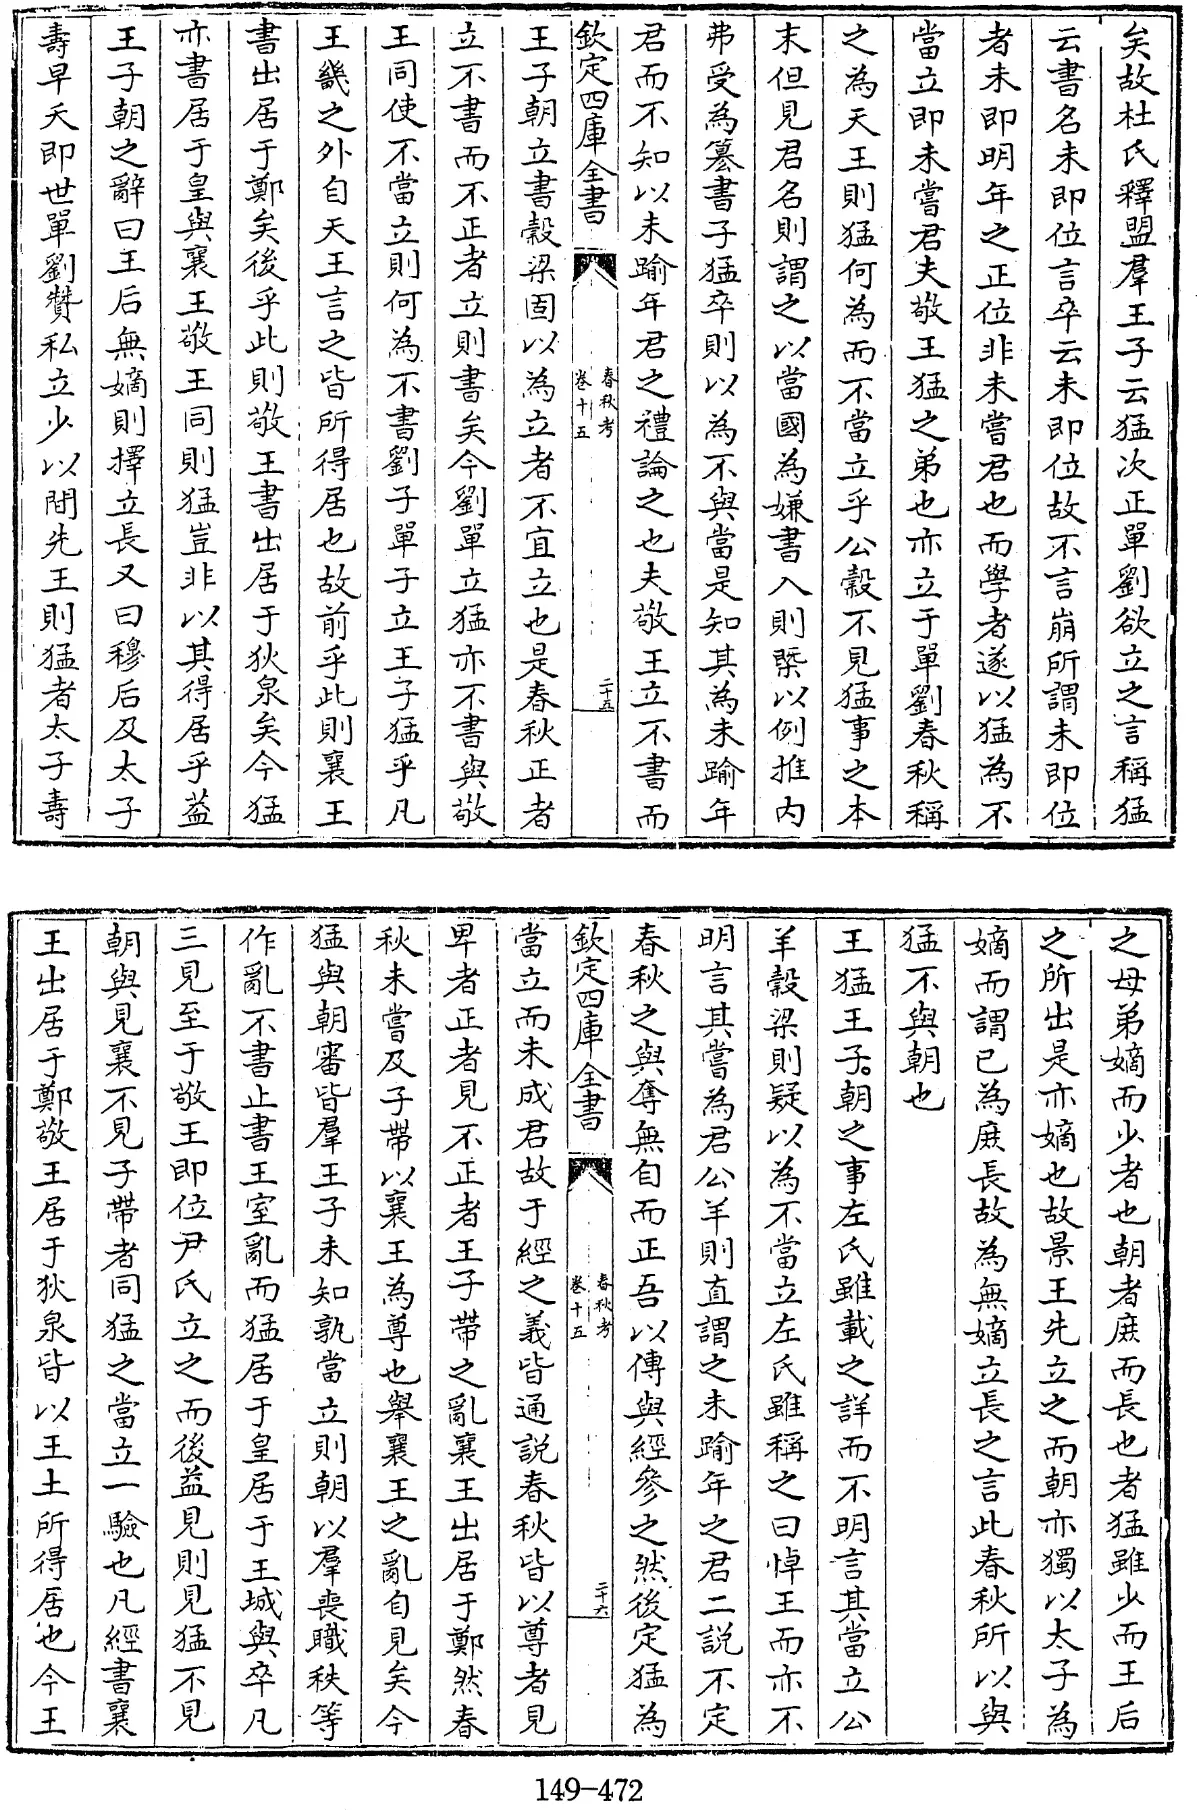 矣故杜氏釋盟羣王子云猛次正單劉欲立之言稱猛
云書名未即位言卒云未即位故不言崩所謂未即位
者未即明年之正位非未嘗君也而學者遂以猛為不
當立即未嘗君夫敬王猛之弟也亦立于單劉春秋稱
之為天王則猛何為而不當立乎公穀不見猛事之本
末但見君名則謂之以當國為嫌書入則槩以例推内
弗受為簒書子猛卒則以為不與當是知其為未踰年
君而不知以未踰年君之禮論之也夫敬王立不書而
欽定四庫全書
春秋考
卷十五
二十五
王子朝立書穀梁固以為立者不宜立也是春秋正者
立不書而不正者立則書矣今劉單立猛亦不書與敬
王同使不當立則何為不書劉子單子立王子猛乎凡
王畿之外自天王言之皆所得居也故前乎此則襄王
書出居于鄭矣後乎此則敬王書出居于狄泉矣今猛
亦書居于皇與襄王敬王同則猛豈非以其得居乎葢
王子朝之辭曰王后無嫡則擇立長又曰穆后及太子
壽早夭即世單劉贊私立少以間先王則猛者太子壽
之母弟嫡而少者也朝者庶而長也者猛雖少而王后
之所出是亦嫡也故景王先立之而朝亦獨以太子為
嫡而謂已為庶長故為無嫡立長之言此春秋所以與
猛不與朝也
王猛王子朝之事左氏雖載之詳而不明言其當立公
羊穀梁則疑以為不當立左氏雖稱之曰悼王而亦不
明言其嘗為君公羊則直謂之未踰年之君二説不定
春秋之與奪無自而正吾以傳與經參之然後定猛為
欽定四庫全書
春秋考
卷十五
二十六
當立而未成君故于經之義皆通説春秋皆以尊者見
卑者正者見不正者王子帶之亂襄王出居于鄭然春
秋未嘗及子帶以襄王為尊也舉襄王之亂自見矣今
猛與朝審皆羣王子未知孰當立則朝以羣喪職秩等
作亂不書止書王室亂而猛居于皇居于王城與卒凡
三見至于敬王即位尹氏立之而後益見則見猛不見
朝與見襄不見子帶者同猛之當立一驗也凡經書襄
王出居于鄭敬王居于狄泉皆以王土所得居也今王
149-472